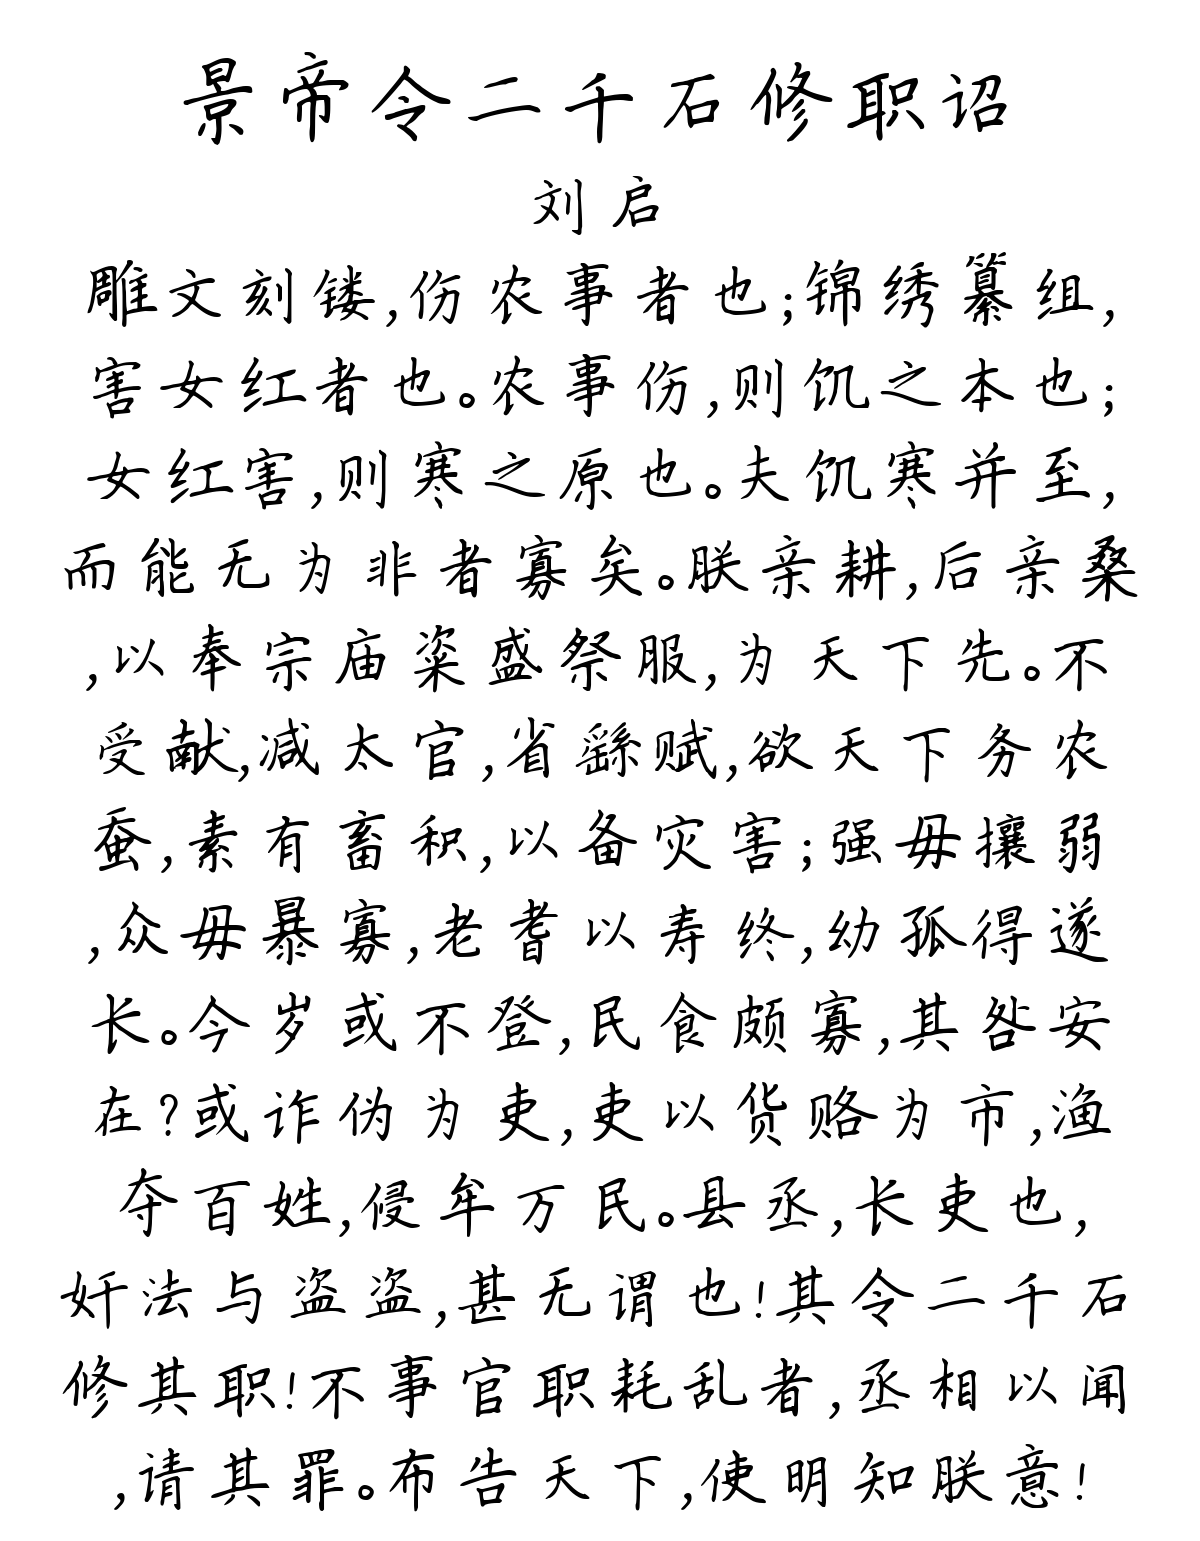 景帝令二千石修职诏
刘启
雕文刻镂,伤农事者也;锦绣纂组,
害女红者也。农事伤,则饥之本也;
女红害,则寒之原也。夫饥寒并至,
而能无为非者寡矣。朕亲耕,后亲桑
,以奉宗庙粢盛祭服,为天下先。不
受献,减太官,省繇赋,欲天下务农
蚕,素有畜积,以备灾害;强毋攘弱
,众毋暴寡,老耆以寿终,幼孤得遂
长。今岁或不登,民食颇寡,其咎安
在?或诈伪为吏,吏以货赂为市,渔
夺百姓,侵牟万民。县丞,长吏也,
奸法与盗盗,甚无谓也!其令二千石
修其职!不事官职耗乱者,丞相以闻
,请其罪。布告天下,使明知朕意!